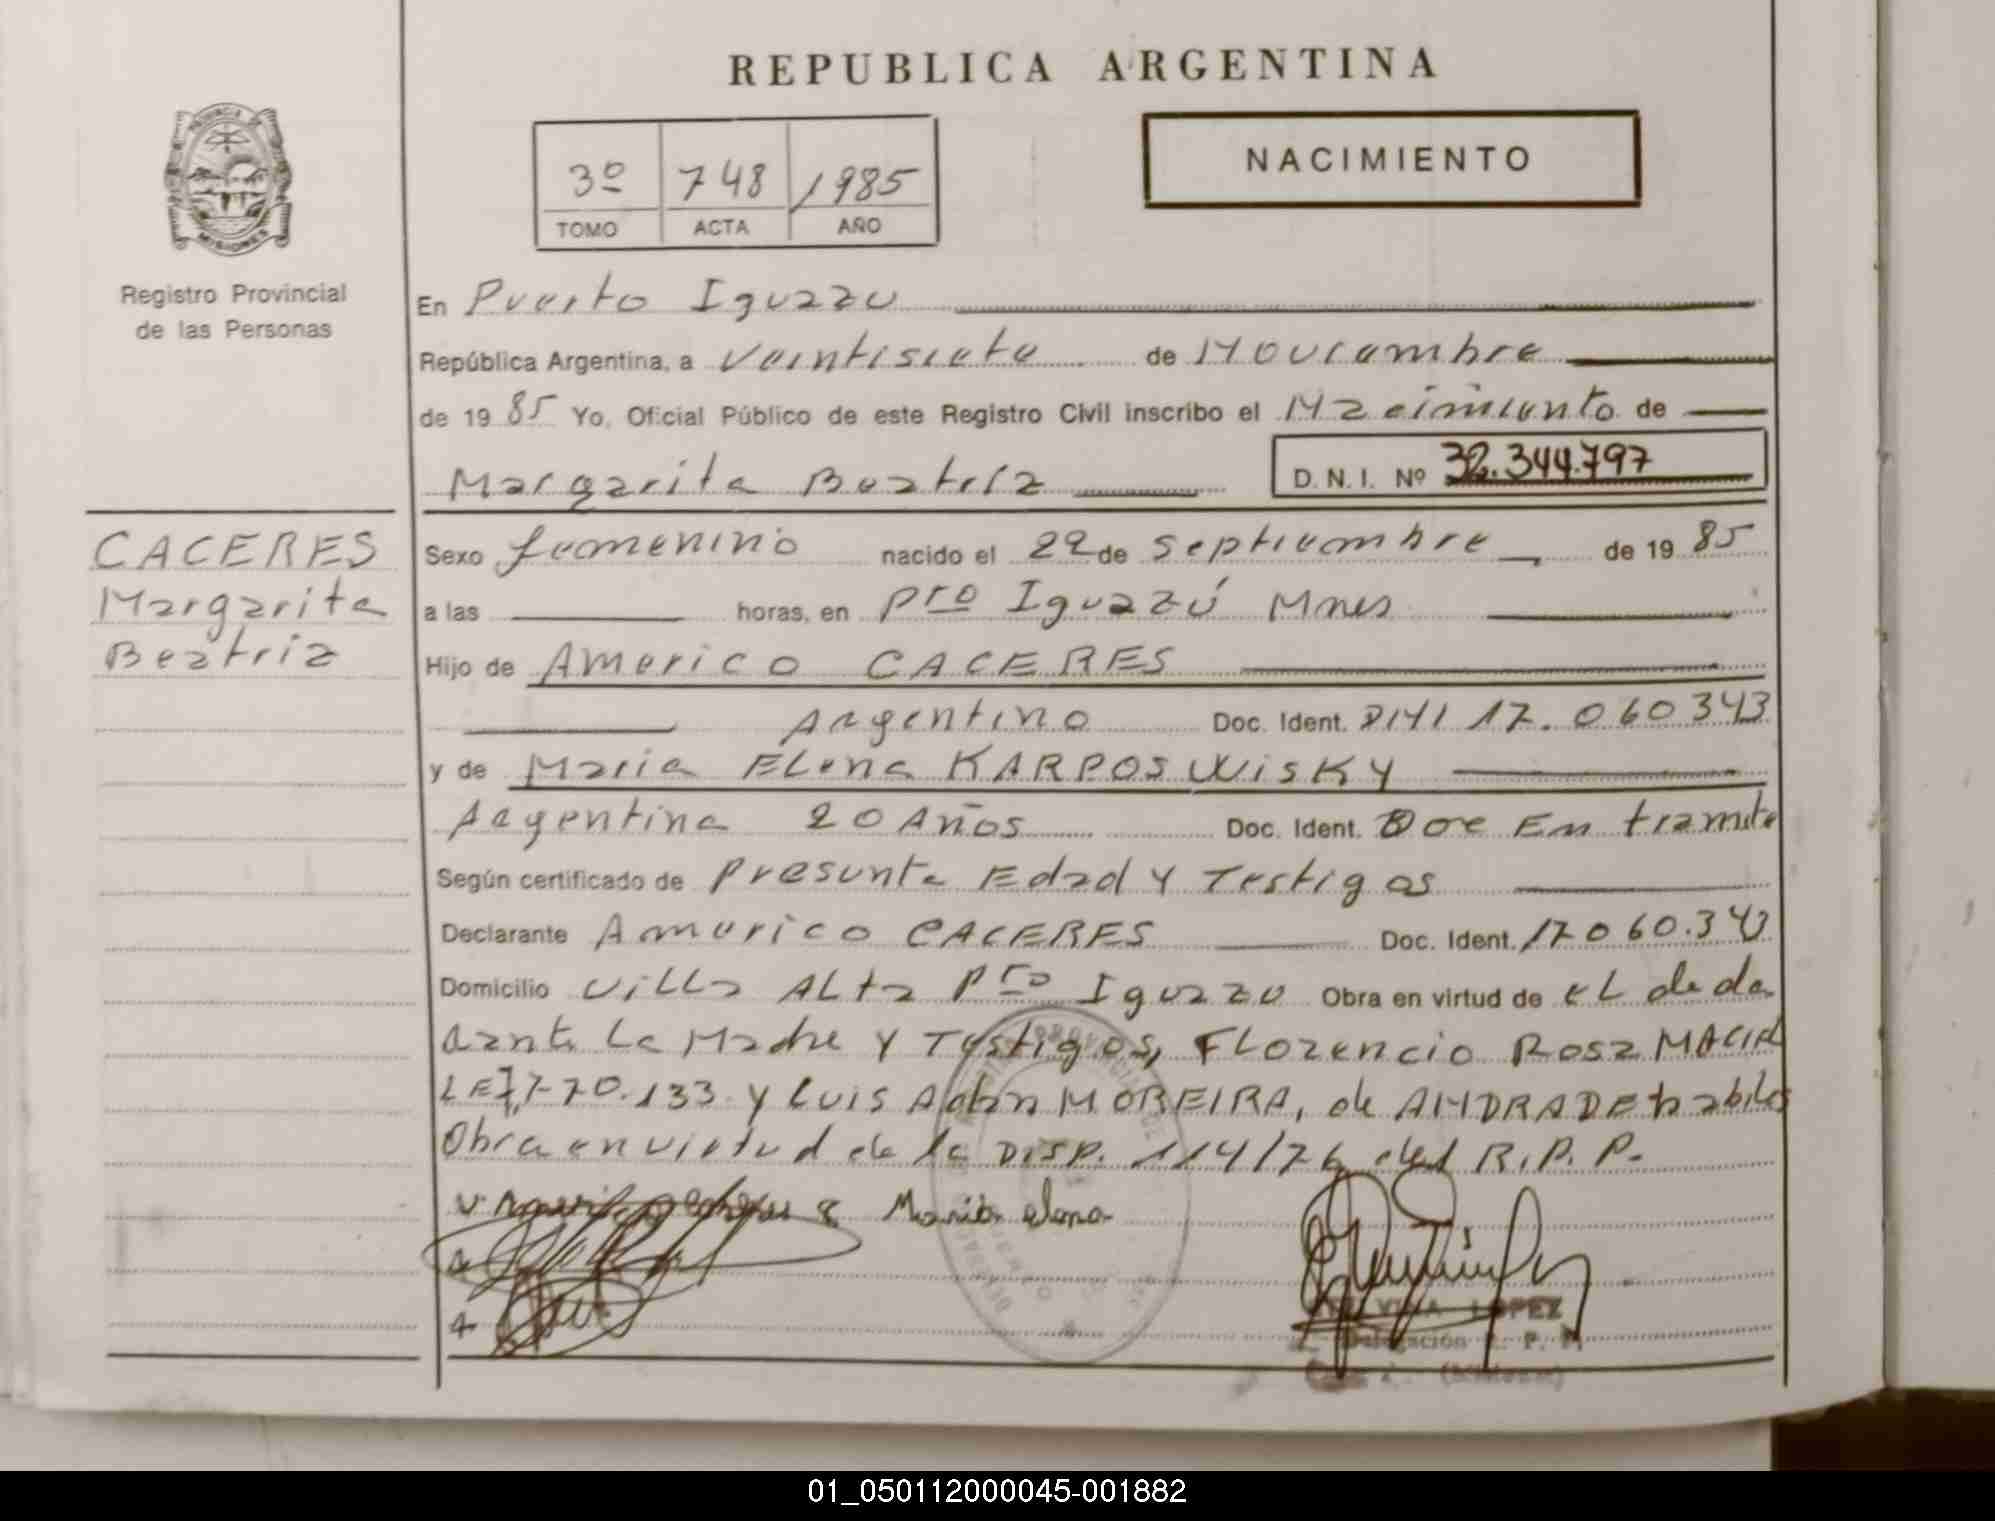 REPUBLICA ARGENTINA
PROVINCIA DE
MISIONES
3º 748 1985
TOMO ACTA AÑO
NACIMIENTO
Registro Provincial
de las Personas
En Puerto Iguazu
República Argentina, a veintisiete de Noviembre
de 19 85 Yo, Oficial Público de este Registro Civil inscribo el Nacimiento de
Margarita Beatriz D. N. I. Nº 32.344.797
CACERES
Margarita
Beatriz
Sexo femenino nacido el 22 de septiembre de 19 85
a las horas, en Pto Iguazú Mnes
Hijo de Americo CACERES
Argentino Doc. Ident. DNI 17.060343
y de Maria Elena KARPOSWISKY
Argentina 20 Años Doc. Ident. Doc En tramite
Según certificado de Presunta Edad y Testigos
Declarante Americo CACERES Doc. Ident. 17060.343
Domicilio Villa Alta Pto Iguazu Obra en virtud de el de da
la Madre y Testigos, Florencio Rosa MACIEL
LE 7,770.133 y Luis MOREIRA, de ANDRADE habiles
Obra en virtud de la Disp. 114/76 del R.P.P.
Maria elena
LOPEZ
Delegación R. P. P.
01_050112000045-001882